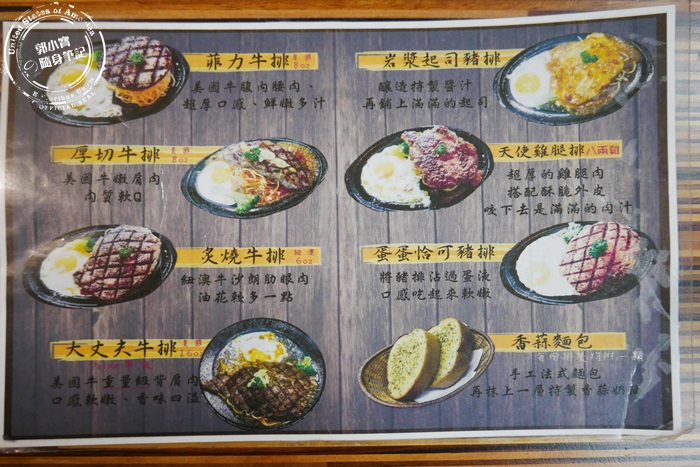 United States of America
郭小寶
隨身筆記
OFFICIAL SEAL
菲力牛排 美國 8oz
美國牛腹內腰肉、
超厚口感、鮮嫩多汁
厚切牛排 美國 8oz
美國牛嫩肩肉
肉質軟Q
炙燒牛排 紐澳 6oz
紐澳牛沙朗肋眼肉
油花較多一點
大丈夫牛排 美國 16oz
美國牛重量級背肩肉
口感軟嫩、香味四溢
岩漿起司豬排
釀造特製醬汁
再鋪上滿滿的起司
天使雞腿排 八兩雞
超厚的雞腿肉
搭配酥脆外皮
咬下去是滿滿的肉汁
蛋蛋恰可豬排
將豬排沾過蛋液
口感吃起來軟嫩
香蒜麵包
手工法式麵包
再抹上一層特製香蒜奶